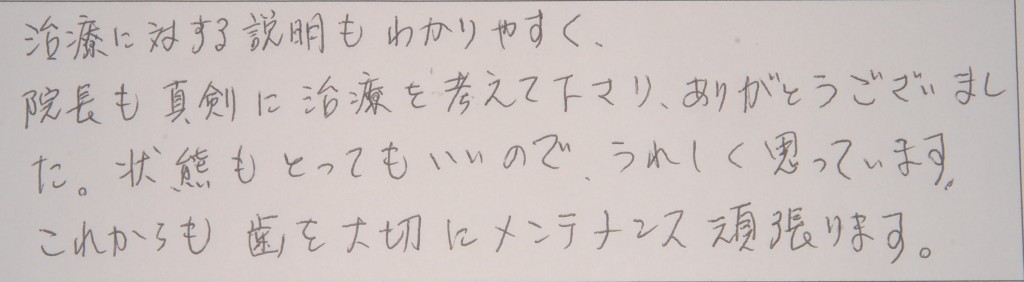 治療に対する説明もわかりやすく、
院長も真剣に治療を考えて下さり、ありがとうございまし
た。状態もとってもいいので、うれしく思っています。
これからも歯を大切にメンテナンス頑張ります。